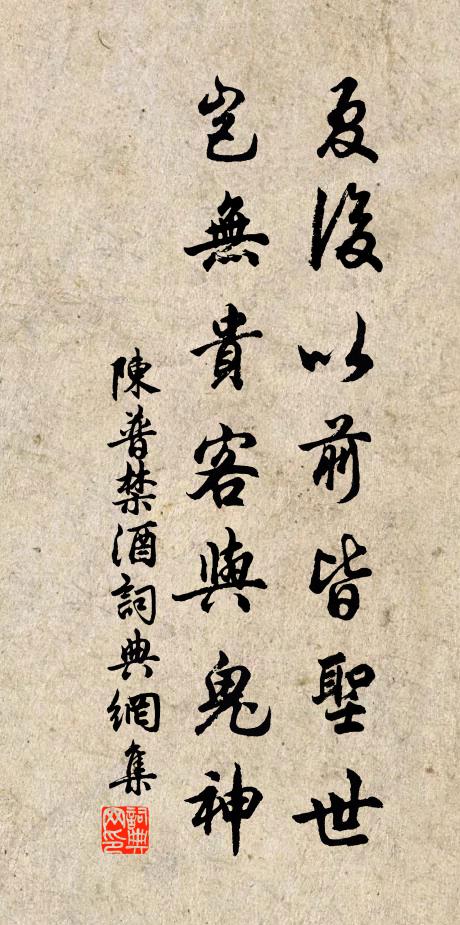 夏後以前皆聖世
豈無貴客與鬼神
陳普禁酒詞典網集
詞典网印